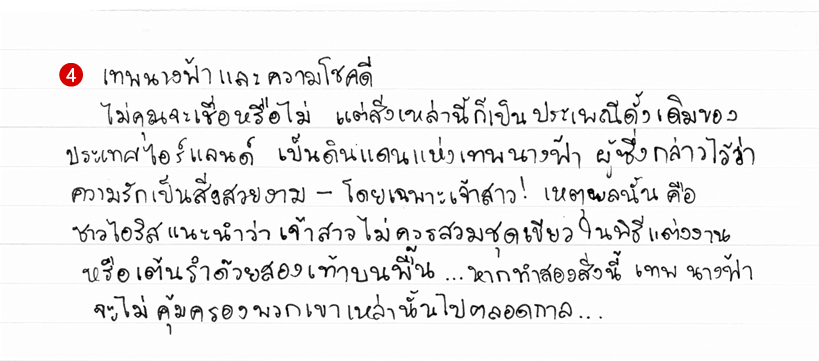 4 เทพนางฟ้าและความโชคดี
ไม่คุณจะเชื่อหรือไม่ แต่สิ่งเหล่านี้ก็เป็นประเพณีดั้งเดิมของ
ประเทศไอร์แลนด์ เป็นดินแดนแห่งเทพนางฟ้า ผู้ซึ่งกล่าวไว้ว่า
ความรักเป็นสิ่งสวยงาม – โดยเฉพาะเจ้าสาว! เหตุผลนั้นคือ
ชาวไอริสแนะนำว่า เจ้าสาวไม่ควรสวมชุดเขียวในพิธีแต่งงาน
หรือเต้นรำด้วยสองเท้าบนพื้น ...หากทำสองสิ่งนี้ เทพนางฟ้า
จะไม่คุ้มครองพวกเขาเหล่านั้นไปตลอดกาล...